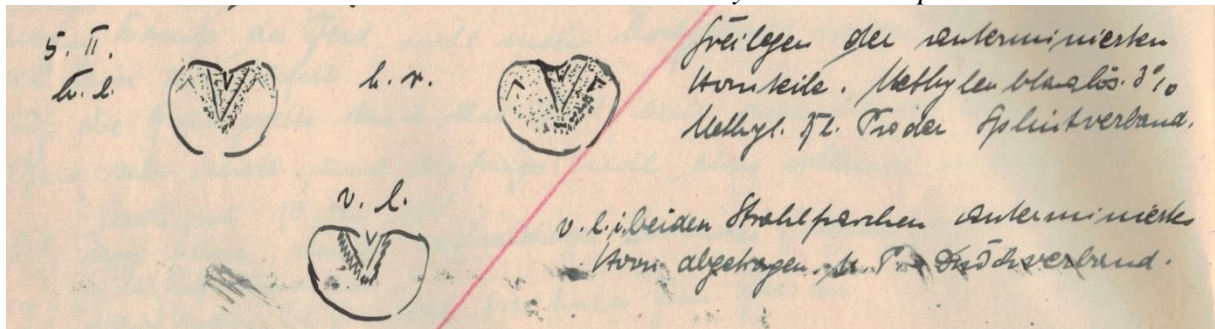 5. II.
h. l.
h. r.
freilegen der unterminierten
Hornteile. Methylenblaulös. 3%
Methyl. Pl. Proder Splintverband.
v. l.
v. l. i. beiden Strahlfurchen unterminiertes
Horn abgetragen. M. P. Druckverband.